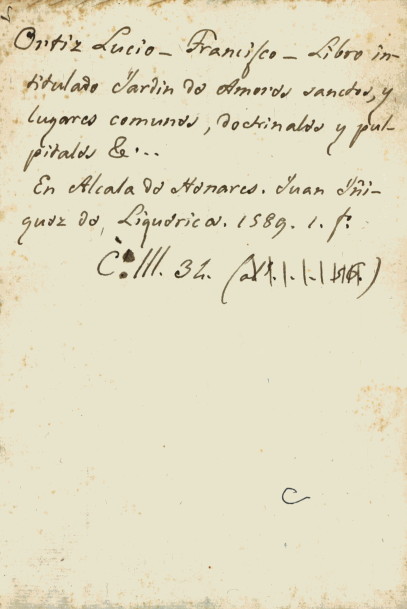 Ortiz Lucio - Francisco - Libro in-
titulado Jardin de Amores sanctos, y
lugares comunes, doctrinales y pul-
pitales &...
En Alcala de Henares. Juan Iñi-
guez de, Liquerica. 1589. 1. f.
C. III. 32.
C